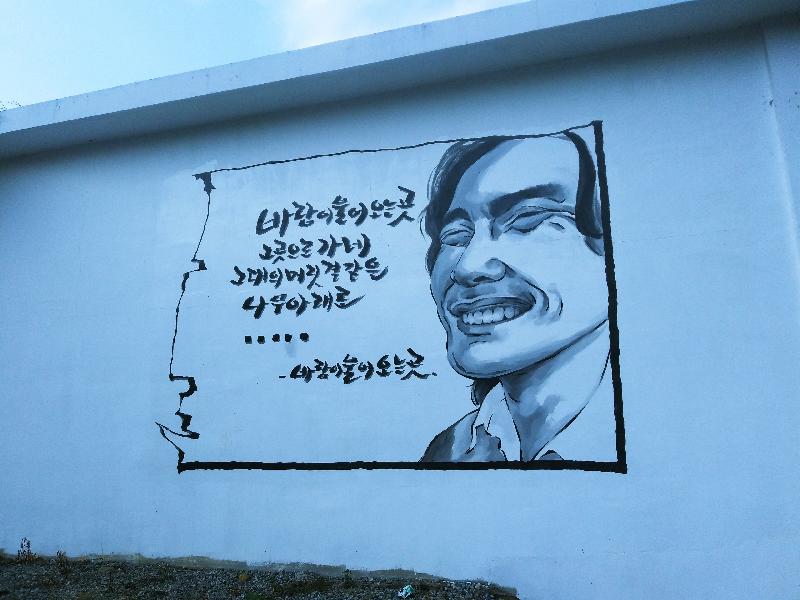 바람이 불어 오는 곳
그곳으로 가네
그대의 머릿결 같은
나무 아래로
.....
- 바람이 불어 오는 곳.